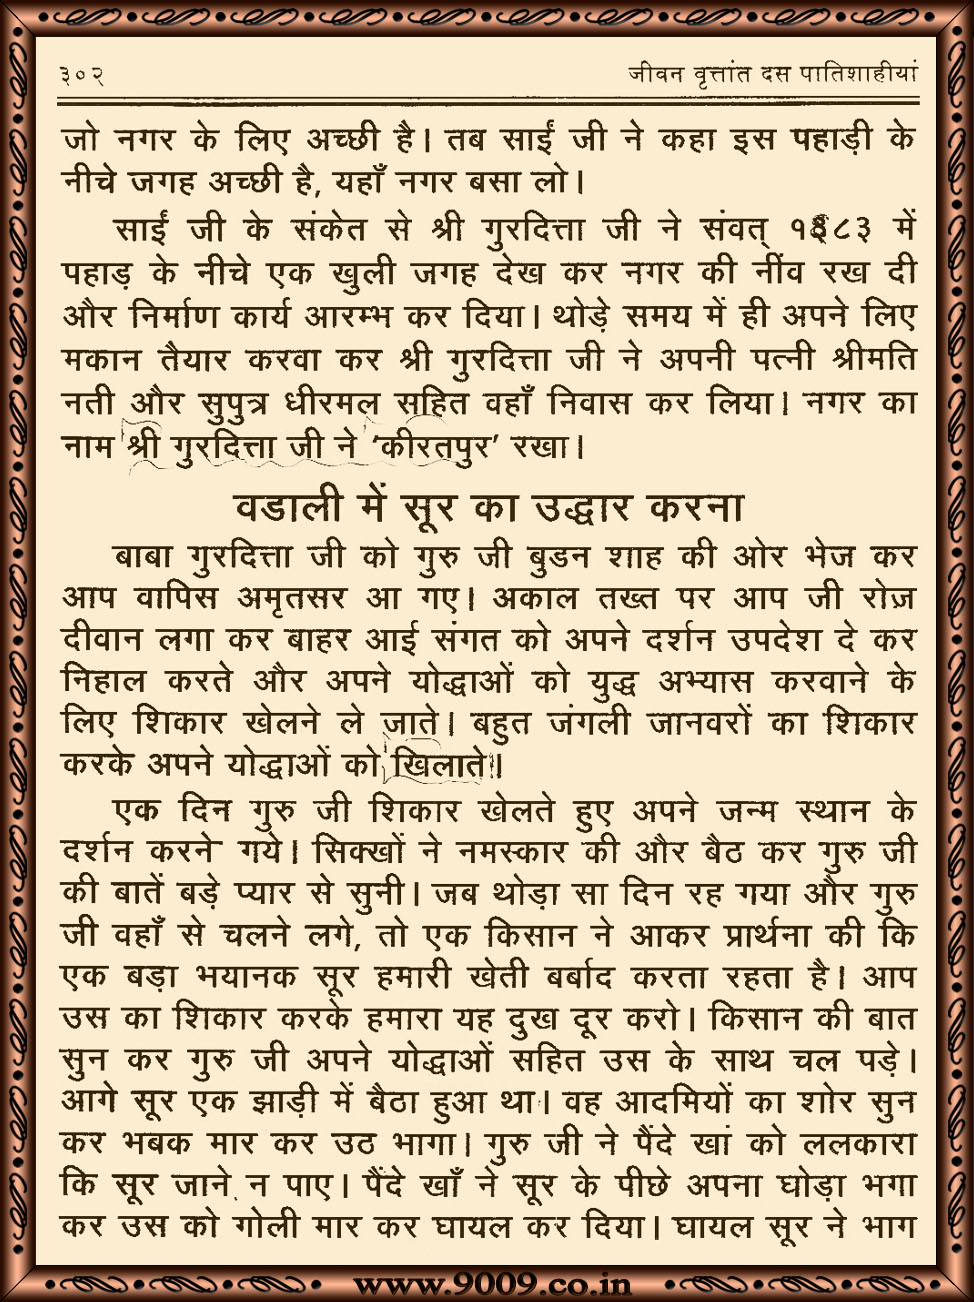 ३०२
जीवन वृत्तांत दस पातिशाहीयां
जो नगर के लिए अच्छी है। तब साईं जी ने कहा इस पहाड़ी के
नीचे जगह अच्छी है, यहाँ नगर बसा लो।
साईं जी के संकेत से श्री गुरदित्ता जी ने संवत् में
पहाड़ के नीचे एक खुली जगह देख कर नगर की नींव रख दी
और निर्माण कार्य आरम्भ कर दिया। थोड़े समय में ही अपने लिए
मकान तैयार करवा कर श्री गुरदित्ता जी ने अपनी पत्नी श्रीमति
नती और सुपुत्र धीरमल सहित वहाँ निवास कर लिया। नगर का
नाम श्री गुरदित्ता जी ने ‘कीरतपुर’ रखा।
वडाली में सूर का उद्धार करना
बाबा गुरदित्ता जी को गुरु जी बुडन शाह की ओर भेज कर
आप वापिस अमृतसर आ गए। अकाल तख्त पर आप जी रोज़
दीवान लगा कर बाहर आई संगत को अपने दर्शन उपदेश दे कर
निहाल करते और अपने योद्धाओं को युद्ध अभ्यास करवाने के
लिए शिकार खेलने ले जाते। बहुत जंगली जानवरों का शिकार
करके अपने योद्धाओं को खिलाते।
एक दिन गुरु जी शिकार खेलते हुए अपने जन्म स्थान के
दर्शन करने गये। सिक्खों ने नमस्कार की और बैठ कर गुरु जी
की बातें बड़े प्यार से सुनी। जब थोड़ा सा दिन रह गया और गुरु
जी वहाँ से चलने लगे, तो एक किसान ने आकर प्रार्थना की कि
एक बड़ा भयानक सूर हमारी खेती बर्बाद करता रहता है। आप
उस का शिकार करके हमारा यह दुख दूर करो। किसान की बात
सुन कर गुरु जी अपने योद्धाओं सहित उस के साथ चल पड़े।
आगे सूर एक झाड़ी में बैठा हुआ था। वह आदमियों का शोर सुन
कर भबक मार कर उठ भागा। गुरु जी ने पैंदे खां को ललकारा
कि सूर जाने न पाए। पैंदे खाँ ने सूर के पीछे अपना घोड़ा भगा
कर उस को गोली मार कर घायल कर दिया। घायल सूर ने भाग
www.9009.co.in